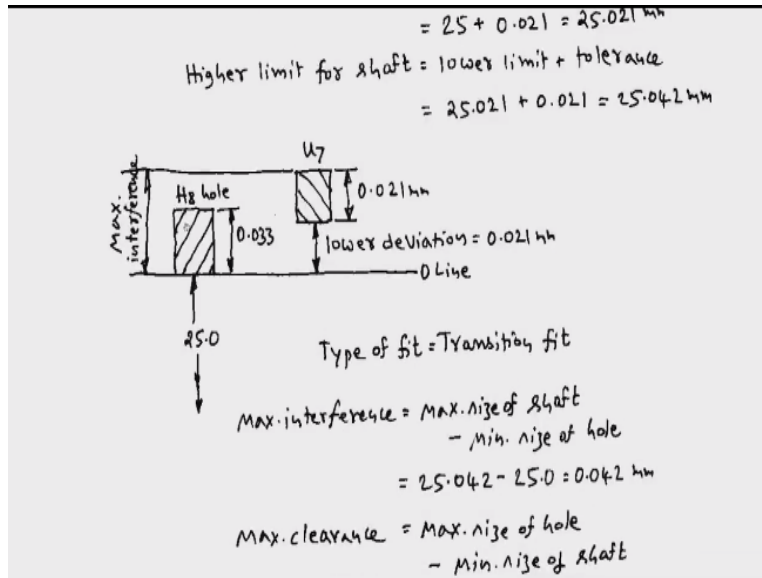 = 25 + 0.021 = 25.021 mm
Higher limit for shaft = lower limit + tolerance
= 25.021 + 0.021 = 25.042 mm
U7
Max. interference
H8 hole
0.033
0.021 mm
lower deviation = 0.021 mm
0 Line
25.0
Type of fit = Transition fit
Max. interference = Max. size of shaft
- Min. size of hole
= 25.042 - 25.0 = 0.042 mm
Max. clearance = Max. size of hole
- Min. size of shaft